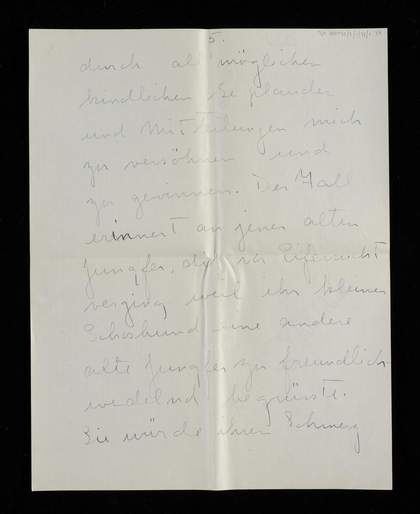 5.
durch al möglichen
kindlichen Geplauder
und Mitteilungen mich
zu versöhnen und
zu gewinnen. Der Fall
erinnert an jener alten
Jungfer, die vor Eifersucht
verging, weil ihr kleiner
Schoshund eine andere
alte Jungfer zu freundlich
wedelnd begrüsste.
Sie würde ihren Schmerz